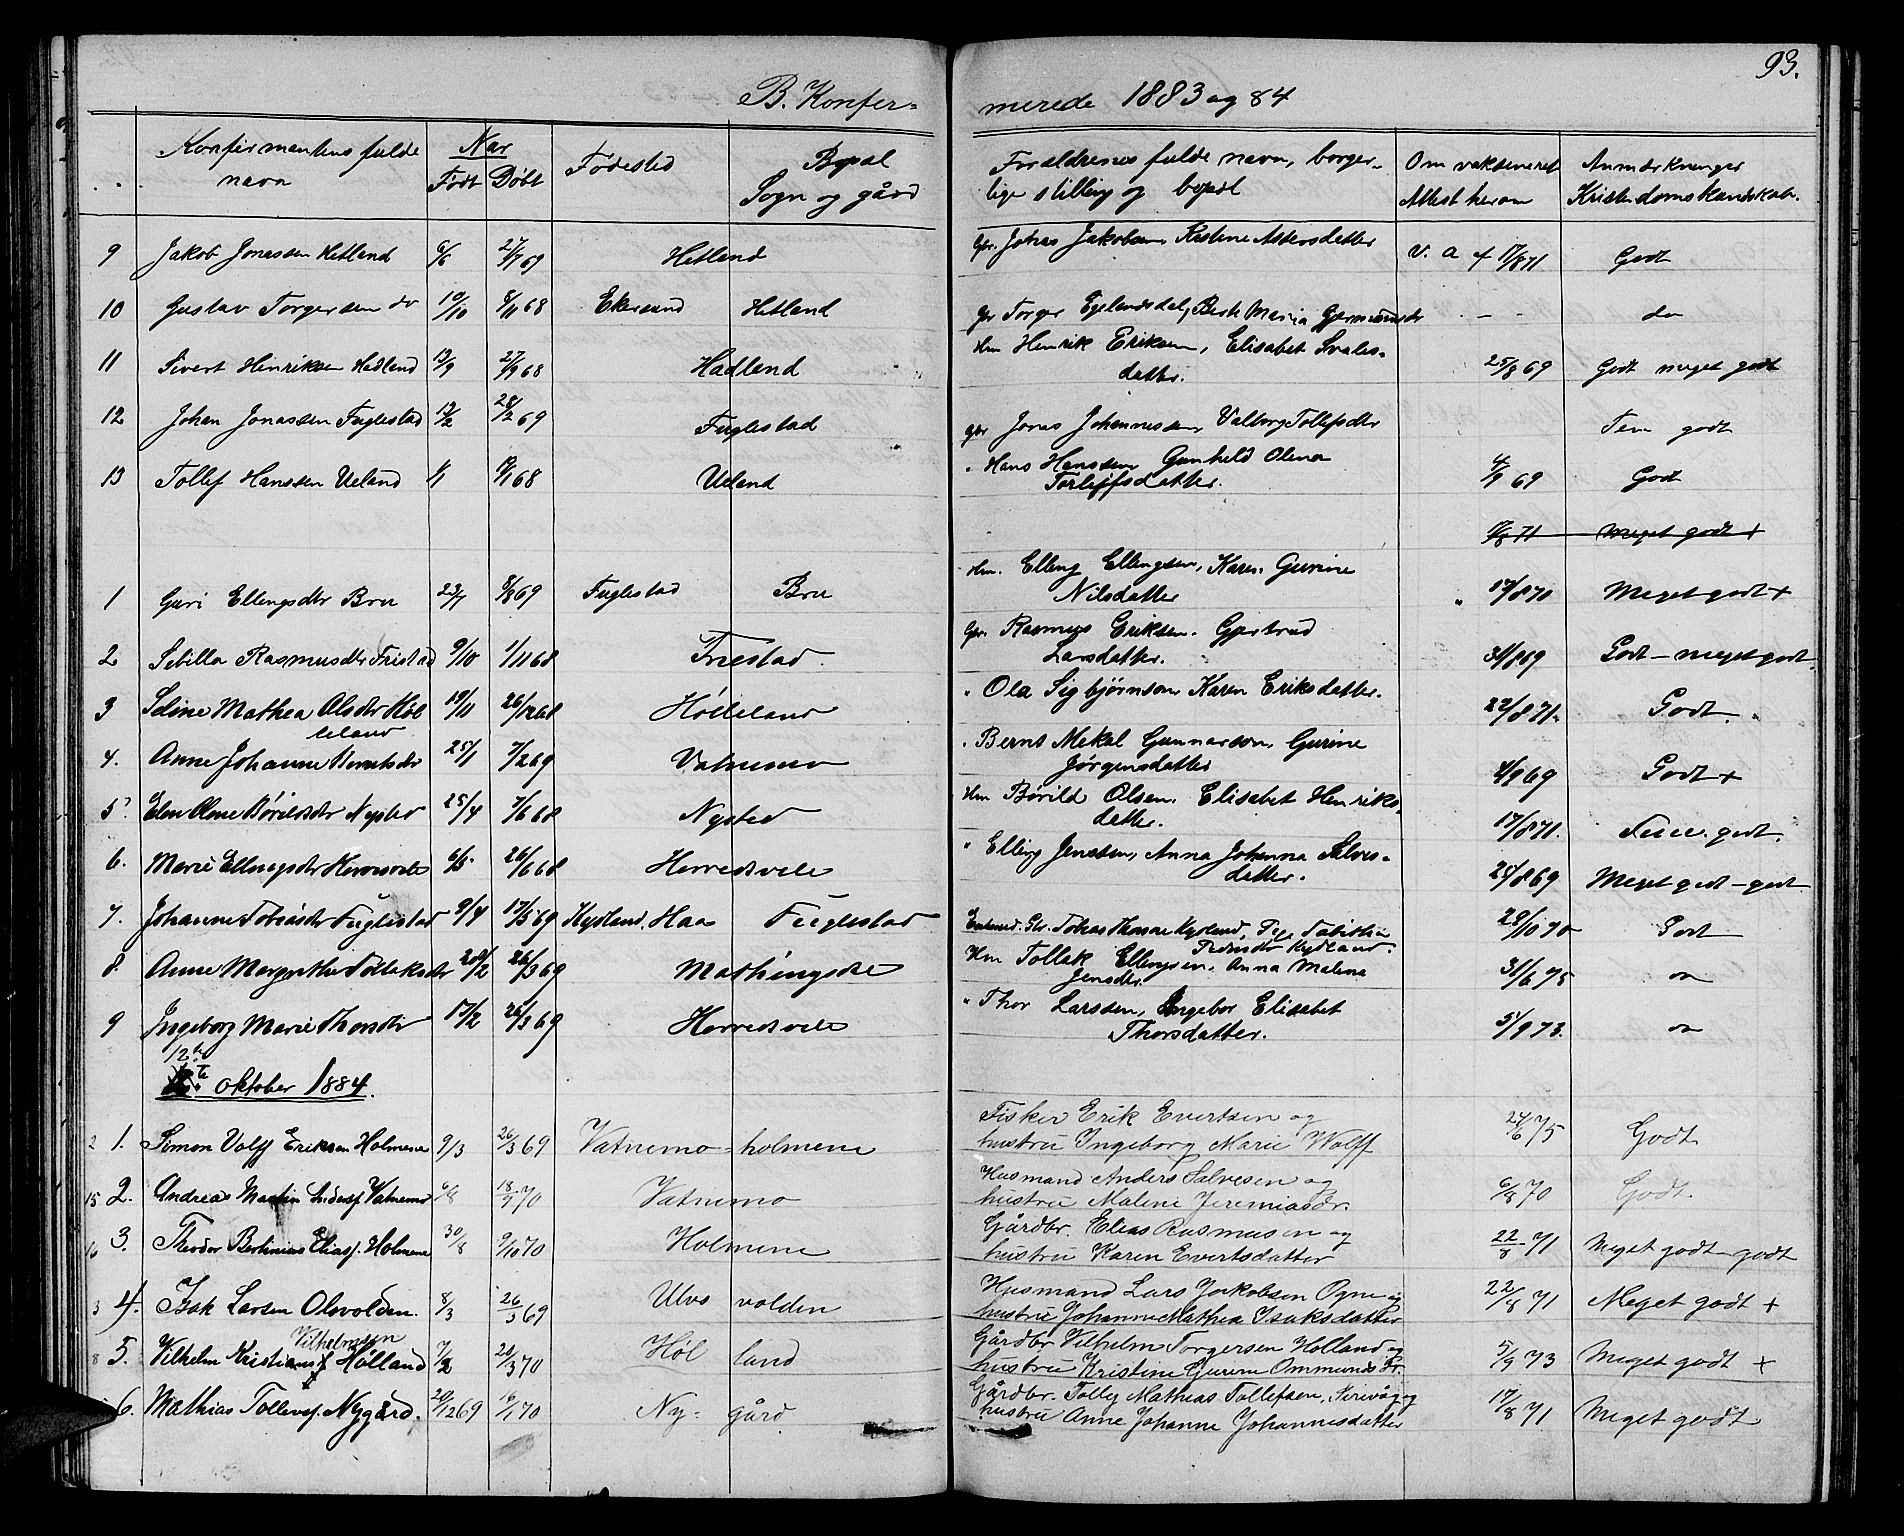 93.
B. Konfer= merede 1883 og 84
Konfirmantens fulde navn | Når Født Døbt | Fødested | Bopæl Sogn og gård | Forældrenes fulde navn, borger- lige stilling og bopæl | Om vaksineret Attest herom | Anmærkninger Kristendomskundskab.
9 Jakob Jonassen Hetland 6/6 27/7 69 Hetland Gbr. Johas Jakobsen Kistine Astersdatter V. a f 17/8 71 Godt
10 Gustav Torgersen do 10/10 8/11 68 Ekersund Hetland Gbr Torger Egelandsdal, Berte Maria Gjermundsdr - - do
11 Sivert Henriksen Hadland 13/9 27/9 68 Hadland Hm Henrik Eriksen, Elisabet Svales-
datter. 25/8 69 Godt meget godt
12 Johan Jonassen Fuglestad 12/2 28/2 69 Fuglestad gbr Jonas Johannessen Valborg Tollefsdtr Tem godt
13 Tollef Hanssen Ueland 1/1 /1 68 Ueland " Hans Hanssen Gunhild Olena
Torleffsdatter. 4/9 69 Godt
/8 71 Meget godt +
1 Guri Ellengsdtr Bru 22/7 8/8 69 Fuglestad Bru Hm. Elleng Ellengsen, Karen Gurine
Nilsdatter " 17/8 70 Meget godt +
2 Sebilla Rasmusdtr Fristad 9/10 1/11 68 Friestad Gbr. Rasmus Eriksen. Gjertrud
Larsdatter. 31/8 69 Godt - meget godt.
3 Seline Mathea Olsdtr Høl
leland 19/11 26/12 68 Hølleland " Ola Sigbjørnson Karen Eriksdatter. 22/8 71. Godt.
4. Anne Johanne Berntsdtr 25/1 7/2 69 Vatnemo " Bernt Mekal Gunnarson, Gurine
Jørgensdatter 4/9 69 Godt +
5 Elen Olene Børildsdtr Nysted 25/4 7/6 68 Nysted Hm Børild Olsen. Elisabet Henriks
datter. 17/8 71. godt.
6. Marie Ellengsdtr Herredsvele 6/5 26/6 68 Herredsvele " Elling Jenssen, Anna Johanna Salves-
datter. 25/8 69 Meget godt - godt
7. Johanne Tobiasdtr Fuglestad 9/4 17/5 69 Kydland, Haa Fuglestad Gbr. Tobias Thomsen Kydland, Pige Tabitha
Pedersdtr Kydland. 28/10 70 Godt
8. Anne Margrethe Tollaksdtr 28/2 26/3 69 Mathingsdal Hm Tollak Ellengsen. Anna Malene
Jensdtr. 31/6 75 do
9 Ingeborg Marie Thorsdtr 17/2 26/3 69 Herredsvele " Thor Larssen, Ingebor Elisabet
Thorsdatter. 5/9 73. do
12te
oktober 1884.
2 1. Simon Volff Eriksen Holmene 9/3 26/3 69 Vatnemo - holmene Fisker Erik Evertsen og
hustru Ingeborg Marie Wolff 24/6 75 Godt
15 2. Andreas Martin Andersf. Vatnemo 6/8 18/9 70 Vatnemo Husmand Anders Salvesen og
hustru Malene Jeremiasdr. 6/8 70 Godt.
16 3. Theodor Bertinius Eliasf. Holmene 30/8 9/10 70 Holmene Gårdbr. Elias Rasmusen og
hustru Karen Evertsdatter 22/8 71 Meget godt - godt
3 4. Isak Larsen Olsvolden. 8/3 26/3 69 Ulvs volden Husmand Lars Jakobsen Ogne og
hustru Johanne Mathea Isaksdatter 22/8 71 Meget godt +
8 5. Vilhelm Kristian Vilhelmsen Hølland 7/2 20/3 70 Høl land Gårdbr Vilhelm Torgersen Hølland og
hustru Kristine Gurine Ommundsdr. 5/9 73 Meget godt +
6. Mathias Tollevsf. Nygård. 20/12 69 16/1 70 Ny= gård Gårdbr. Tollef Mathias Tollefsen, Sirevåg og
hustru Anne Johanne Johannesdatter 17/8 71 Meget godt